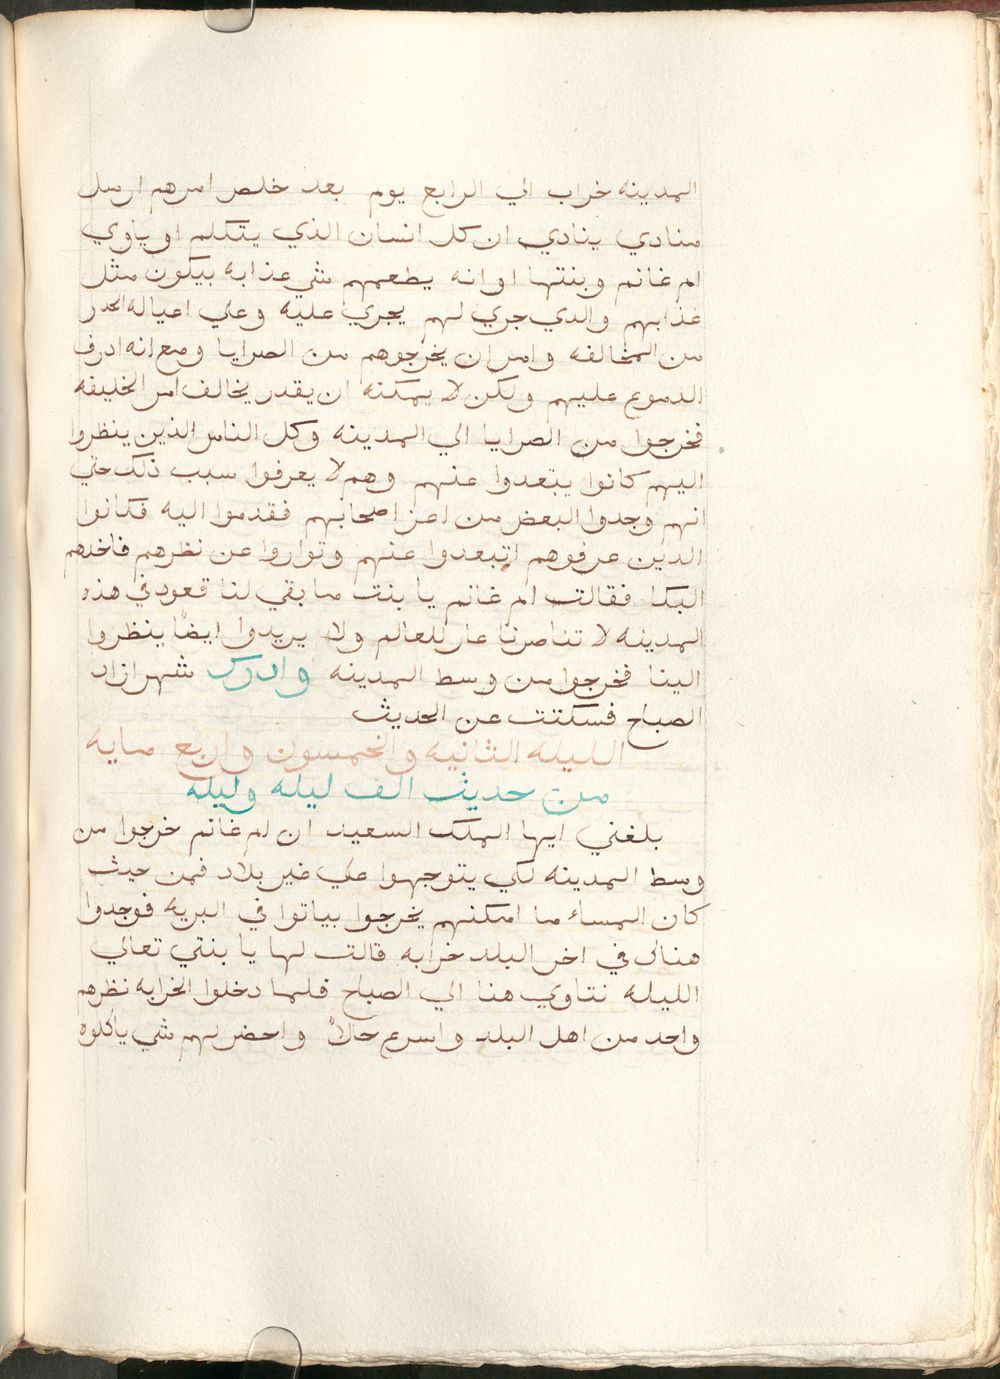 المدينه خراب الي الرابع يوم بعد خلص امرهم ارسل
منادي ينادي ان كل انسان الذي يتكلم او ياوي
ام غانم وبنتها او انه يطعمهم شي عذابه بيكون مثل
عذابهم والدي جري لهم يجري عليه وعلي اعياله الحدر
من المخالفه وامر ان يخرجوهم من الصرايا ومع انه ادرف
الدموع عليهم ولكن لا يمكنه ان يقدر يخالف امر الخليفه
فخرجوا من الصرايا الي المدينه وكل الناس الذين ينظروا
اليهم كانوا يبتعدوا عنهم وهم لا يعرفوا سبب ذلك حتي
انهم وجدوا البعض من اعز اصحابهم فقدموا اليه فكانوا
الدين عرفوهم اتبعدوا عنهم وتواروا عن نظرهم فاخدهم
البكا فقالت ام غانم يا بنت ما بقي لنا قعود في هذه
المدينه لا تناصرنا عار للعالم ولا يريدوا ايضًا ينظروا
الينا فخرجوا من وسط المدينه وادرك شهرازاد
الصباح فسكتت عن الحديث
الليله الثانيه والخمسون واربع مايه
من حديث الف ليله وليله
بلغني ايها الملك السعيد ان ام غانم خرجوا من
وسط المدينه لكي يتوجهوا علي غير بلاد فمن حيث
كان المساء ما امكنهم يخرجوا يباتوا في البريه فوجدوا
هناك في اخر البلد خرابه قالت لها يا بنتي تعالي
الليله نتاوي هنا الي الصباح فلما دخلوا الخرابه نظرهم
واحد من اهل البلد واسرع حالاً واحضر لهم شي ياكلوه